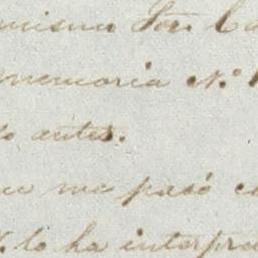 mismo Sor. Ca
memoria N.º
lo antes.
me pasó e
lo ha interpre